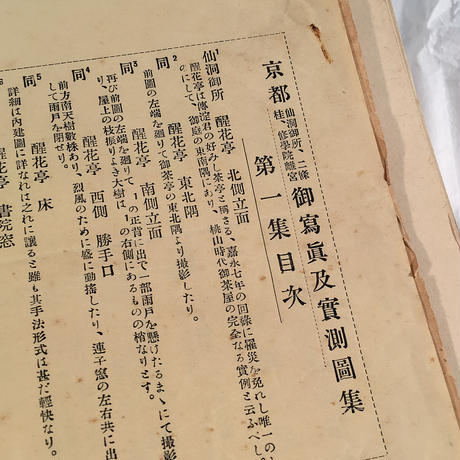 京都 仙洞御所、二條
桂、修學院離宮 御寫眞及實測圖集
第一集目次
仙洞御所 醒花亭 北側立面
醒花亭は傳淀君の好みし茶亭と稱さる、嘉永七年の回祿に罹災を免れし唯一の
のにして、御庭の東南隅にあり、桃山時代御茶屋の完全なる實例と云ふべし。
同2 醒花亭 東北隅
前圖の左端を廻りて御茶亭の東北隅より撮影したり。
同3 醒花亭 南側立面
再び前圖の左端を廻りて、1の正背に出で一部雨戸を懸けたるまゝにて撮影
り、屋上の枝振りよき大樹は、1の右側にあるものの梢なりとす。
同4 醒花亭 西側 勝手口
前方南天樹數株あり、烈風のために盛に動搖したり、連子窓の左右共に出
して雨戸を閉せり。
同5 醒花亭 床
詳細は内建圖に詳なればこれに讓ると雖も其手法形式は甚だ輕快なり。
6 醒花亭 書院窓